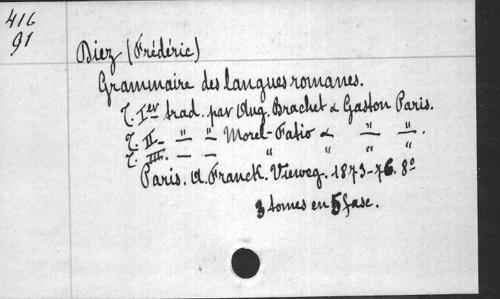 416
91
Diez (Frédéric)
Grammaire des langues romanes.
T. Ier trad. par Aug. Brachet & Gaston Paris.
T. II — " — " Morel-Fatio & — " — " .
T. III. — — " " " "
Paris. A. Franck. Vieweg. 1873-76. 8º
3 tomes en 5 fasc.